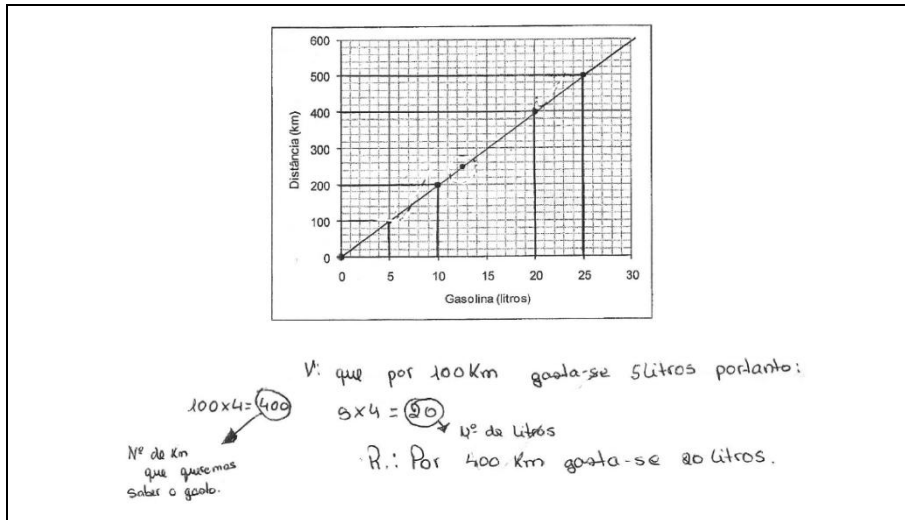 600
500
400
300
200
100
0
Distância (km)
0 5 10 15 20 25 30
Gasolina (litros)
Vi que por 100Km gasta-se 5Litros portanto:
100x4=400 5x4=20
Nº de Litros
Nº de Km
que queremos
saber o gasto.
R.: Por 400 Km gasta-se 20 litros.